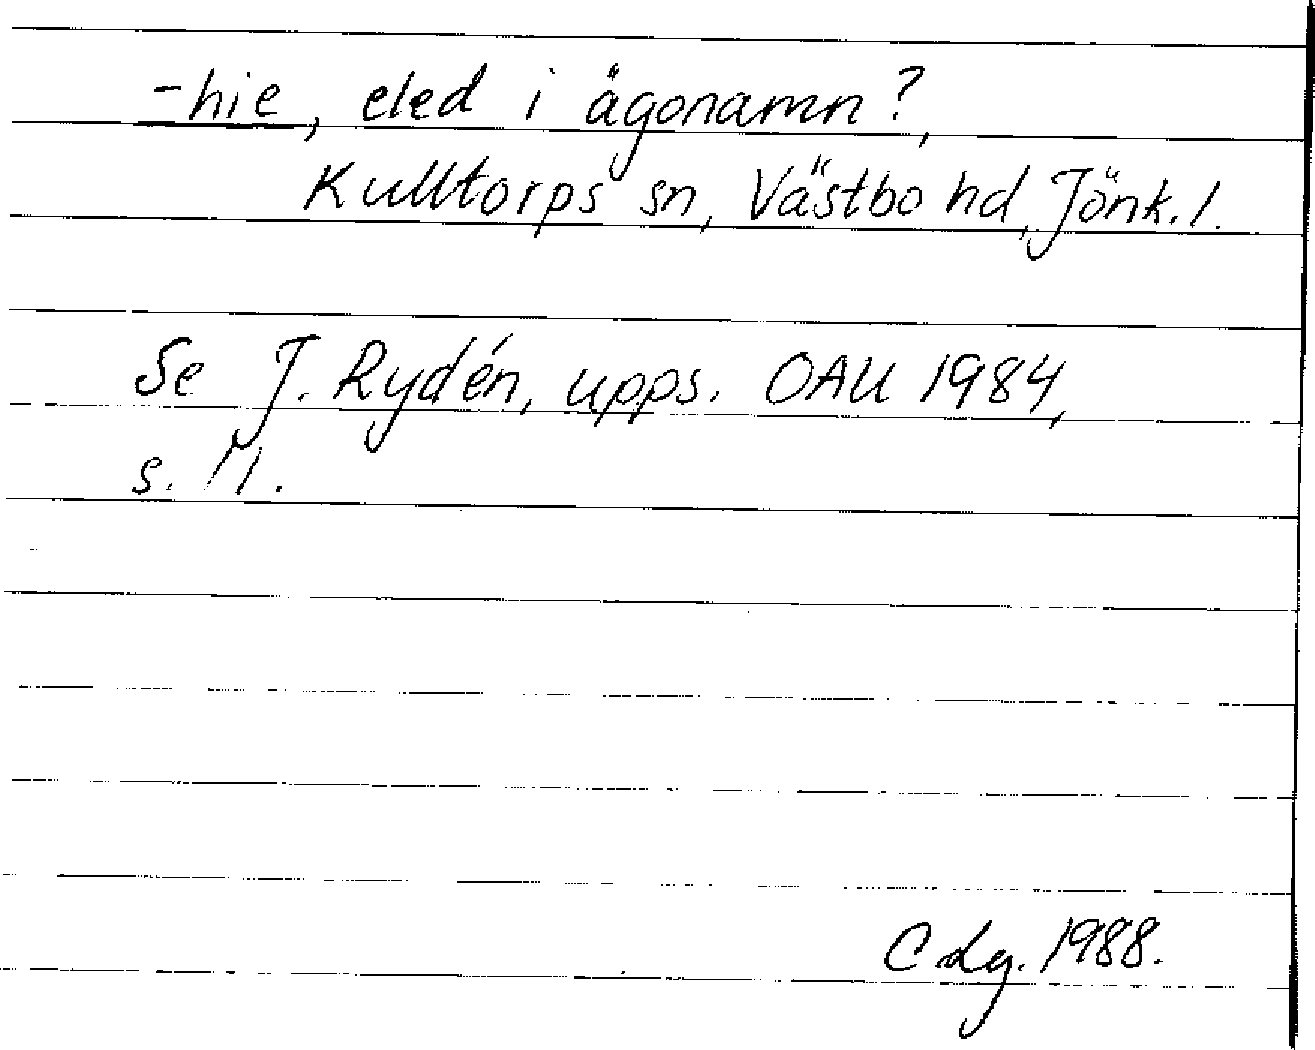 -hie, eled i ägonamn?,
Kulltorps sn, Västbo hd, Jönk. l.
Se J. Rydén, upps. OAU 1984,
s. 11.
C dg. 1988.